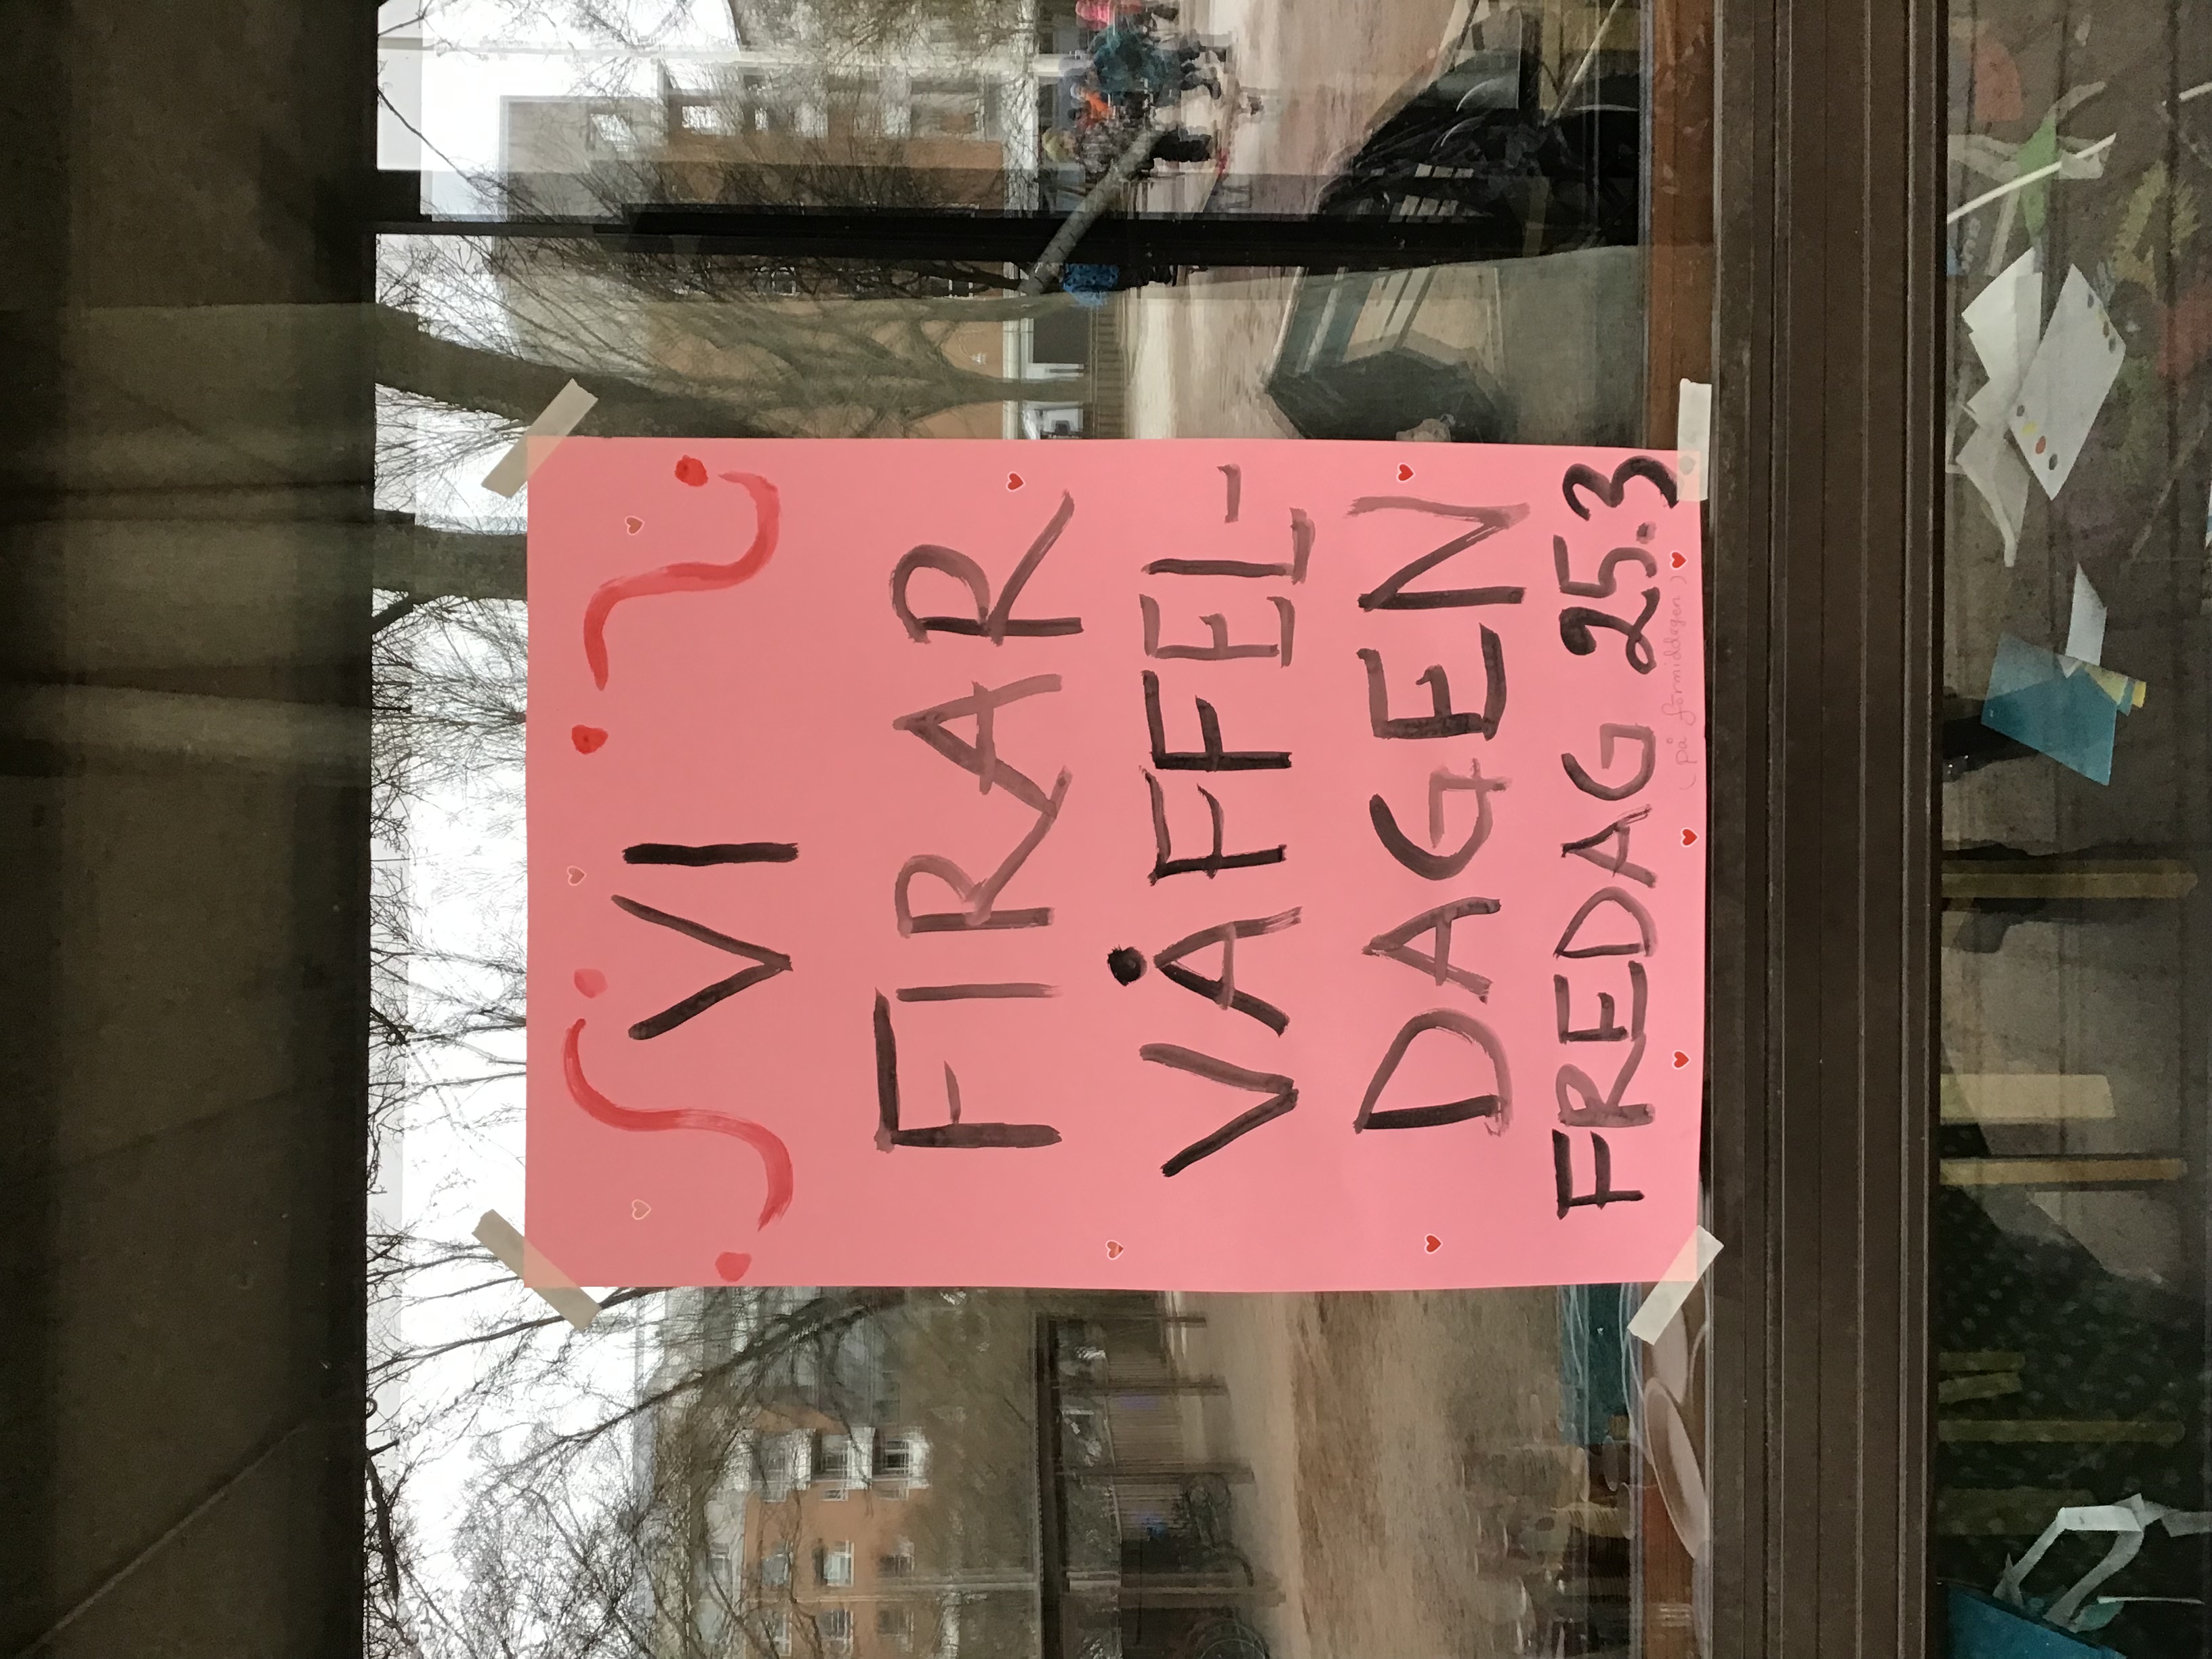 VI
FIRAR
VÅFFEL-
DAGEN
FREDAG 25.3
(på förmiddagen)